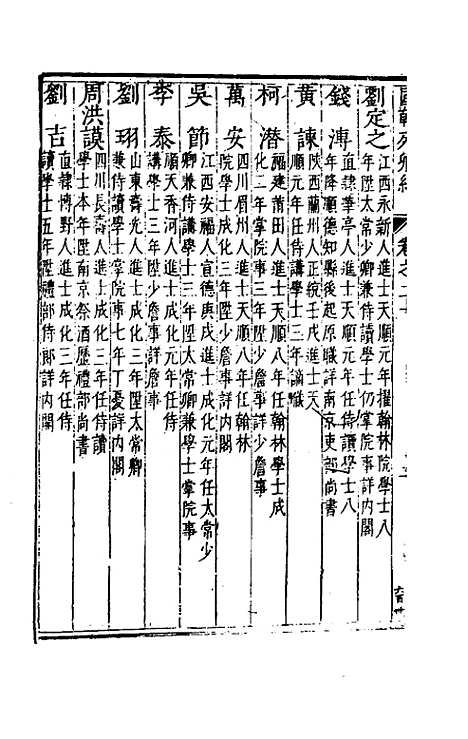 國朝列卿紀 卷之二十
劉定之
江西永新人進士天順元年擢翰林院學士八
年陞太常少卿兼侍讀學士仍掌院事詳內閣
錢溥
直隸華亭人進士天順元年任侍讀學士八
年降順德知縣後起原職詳南京吏部尚書
黃諫
陝西蘭州人正統壬戌進士天
順元年任侍講學士三年謫職
柯潛
福建莆田人進士天順八年任翰林學士成
化二年掌院事三年陞少詹事詳少詹事
萬安
四川眉州人進士天順八年任翰林
院學士成化三年陞少詹事詳內閣
吳節
江西安福人宣德庚戌進士成化元年任太常少
卿兼侍講學士三年陞太常卿兼學士掌院事
李泰
順天香河人進士成化元年任侍
講學士三年陞少詹事詳詹事
劉珝
山東壽光人進士成化三年陞太常卿
兼侍讀學士掌院事七年丁憂詳內閣
周洪謨
四川長壽人進士成化三年任侍讀
學士本年陞南京祭酒歷禮部尚書
劉吉
直隸博野人進士成化三年任侍
讀學士五年陞禮部侍郎詳內閣